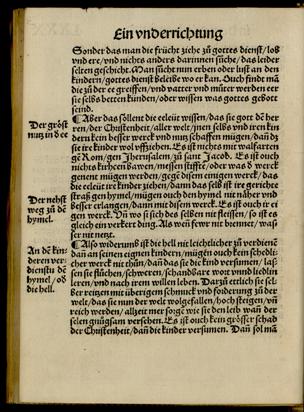 Ein vnderrichtung
Sonder das man die frücht ziehe zů gottes dienst/ lob
vnd ere/ vnd nichts anders darinnen sůche/ das leider
selten geschicht. Man sůcht nun erben oder lust an den
kindern/ gottes dienst beleibe wo er kan. Ouch findt mã
die zů der ee greiffen/ vnd vatter vnd můter werden eer
sie selbs betten kunden/ oder wissen was gottes gebott
seind.
¶ Aber das sollent die eeleüt wissen/ das sie gott dẽ her
ren/ der Christenheit/ aller welt/ jnen selbs vnd iren kin
dern kein besser werck vnd nutz schaffen mügen/ dañ dz
sie ire kinder wol vffziehen. Es ist nichts mit walfarten
gẽ Rom/ gen Jherusalem/ zů sant Jacob. Es ist ouch
nichts kirchen bawen/ messen stifften/ oder was d werck
genent mügen werden/ gegẽ disem einigen werck/ das
die eeleüt ire kinder ziehen/ dann das selb ist ire gerichte
straß gen hymel/ mügen ouch den hymel nit näher vnd
besser erlangen/ dann mit disem werck. Es ist ouch ir ei
gen werck. Vñ wo si sich des selben nit fleissen/ so ist es
gleich ein verkert ding. Als wen fewr nit brennet/ was
ser nit netzt.
¶ Also widerumb ist die hell nit leichtlicher zů verdienẽ
dañ an seinen eignen kindern/ mügen ouch kein schedli
cher werck nit thůn/ dañ das sie die kind versumen/ las
sen sie flůchen/ schweren/ schandbare wort vnnd lieblin
leren/ vnd nach irem willen leben. Darzů etlich sie sel
ber reitzen mit überigem schmuck vnd fürderung zů der
welt/ das sie nun der welt wolgefallen/ hoch steigen/ vñ
reich werden/ allzeit mer sorgẽ wie sie den leib wan der
selen gnůgsam versehen. Es ist ouch kein grösser schad
der Christenheit/ dañ die kinder versumen. Dañ sol mã
Der gröst
nutz in d ee
Der nehst
weg zů dẽ
hymel.
An dẽ kin
deren ver
dienstu dẽ
hymel/ ob
die hell.